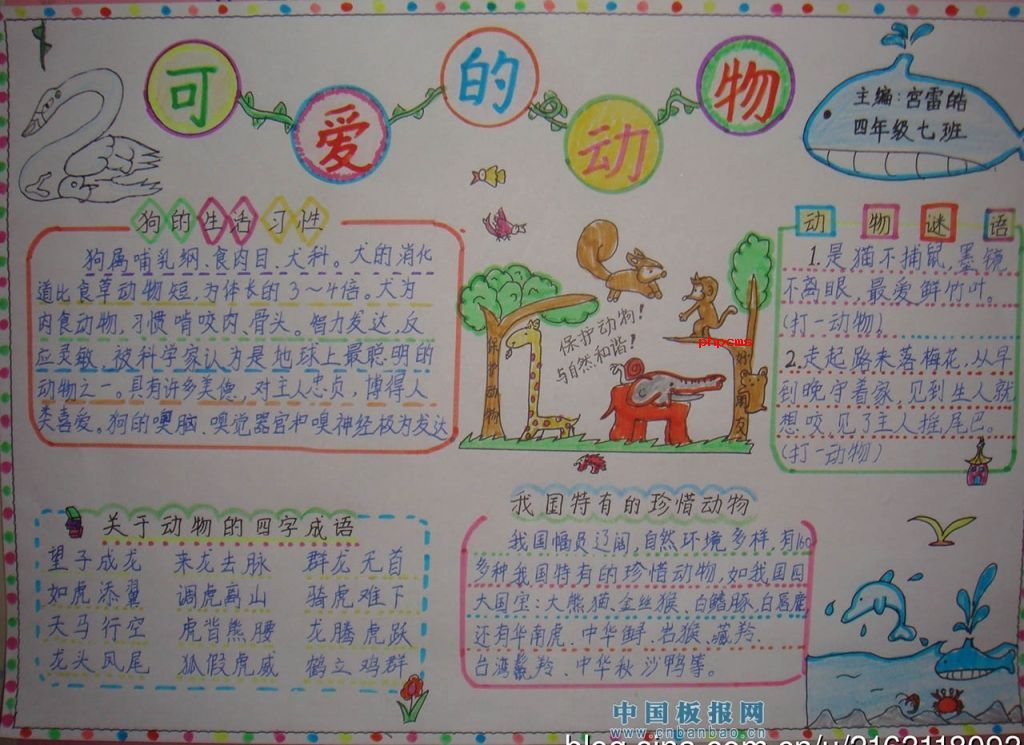 可爱的动物
主编:宫雷皓
四年级七班
狗的生活习性
狗属哺乳纲、食肉目、犬科。犬的消化
道比食草动物短,为体长的3～4倍。犬为
肉食动物,习惯啃咬肉、骨头。智力发达,反
应灵敏,被科学家认为是地球上最聪明的
动物之一。具有许多美德,对主人忠贞,博得人
类喜爱。狗的嗅脑、嗅觉器官和嗅神经极为发达
保护动物!
与自然和谐!
保护动物
phpcms
动物谜语
1.是猫不捕鼠,墨镜
不离眼,最爱鲜竹叶。
(打一动物)
2.走起路来落梅花,从早
到晚守着家,见到生人就
想咬,见了主人摇尾巴。
(打一动物)
关于动物的四字成语
望子成龙 来龙去脉 群龙无首
如虎添翼 调虎离山 骑虎难下
天马行空 虎背熊腰 龙腾虎跃
龙头凤尾 狐假虎威 鹤立鸡群
我国特有的珍惜动物
我国幅员辽阔,自然环境多样,有160
多种我国特有的珍惜动物,如我国四
大国宝:大熊猫、金丝猴、白鳍豚、白唇鹿
还有华南虎、中华鲟、岩猴、藏羚、
台湾鬣羚、中华秋沙鸭等。
中国板报网
www.cnbanbao.cn